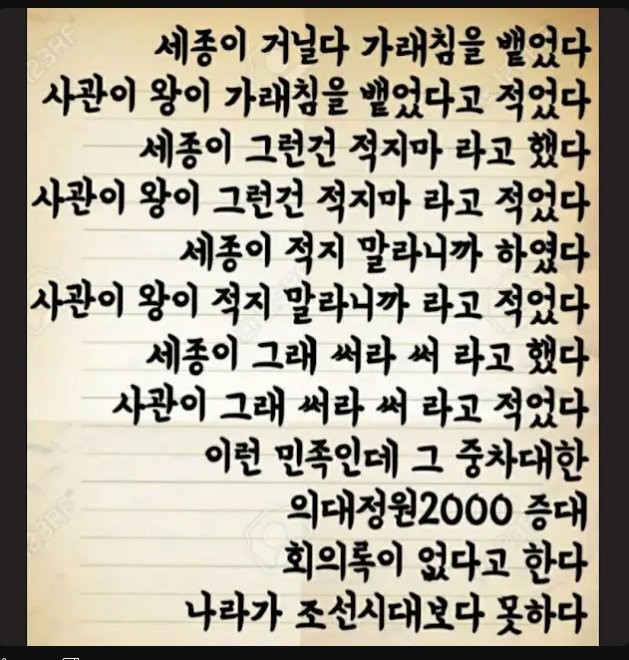 세종이 거닐다 가래침을 뱉었다
사관이 왕이 가래침을 뱉었다고 적었다
세종이 그런건 적지마 라고 했다
사관이 왕이 그런건 적지마 라고 적었다
세종이 적지 말라니까 하였다
사관이 왕이 적지 말라니까 라고 적었다
세종이 그래 써라 써 라고 했다
사관이 그래 써라 써 라고 적었다
이런 민족인데 그 중차대한
의대정원2000 증대
회의록이 없다고 한다
나라가 조선시대보다 못하다